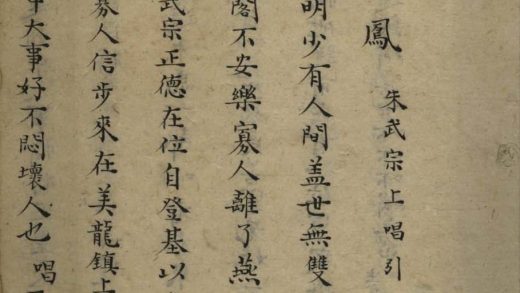 鳳　朱武宗上唱引
明少有人間盖世無雙
閣不安樂寡人離了燕
武宗正德在位自登基以
寡人信步來在美龍鎮上
大事好不悶壞人也　唱